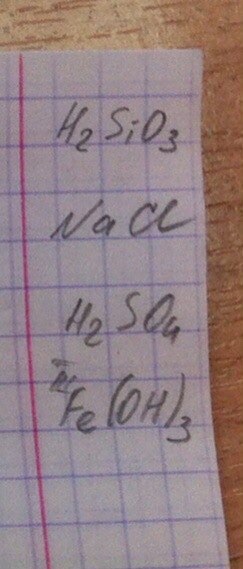 H₂SiO₃
NaCl
H₂SO₄
Fe(OH)₃